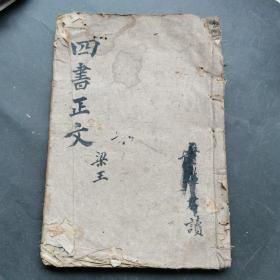 四書正文
梁王
讀